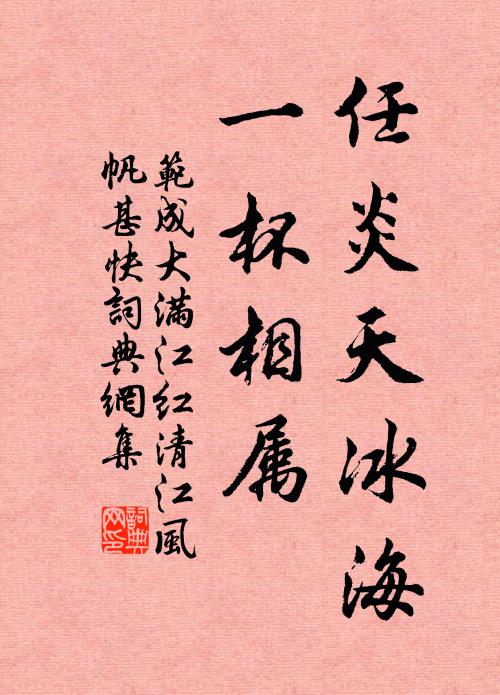 任炎天冰海
一杯相属
範成大满江红清江風
帆甚快詞典網集
詞典网印